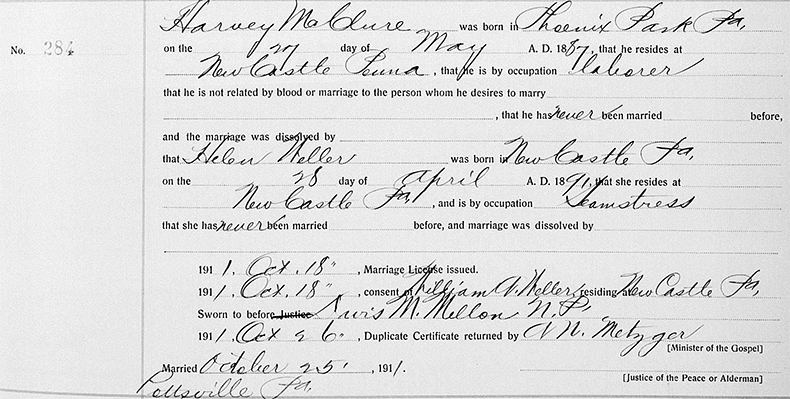 Harvey McClure was born in Phoenix Park Pa.
No. 284 on the 27 day of May A. D. 1887, that he resides at
New Castle Penna, that he is by occupation laborer
that he is not related by blood or marriage to the person whom he desires to marry
, that he has never been married before,
and the marriage was dissolved by
that Helen Weller was born in New Castle Pa.
on the 28 day of April A. D. 1891, that she resides at
New Castle Pa, and is by occupation Seamstress
that she has never been married before, and marriage was dissolved by
1911. Oct. 18", Marriage License issued.
1911. Oct. 18", consent of William A. Weller, residing at New Castle Pa,
Sworn to before Justice M. Mellon N. P.
1911. Oct 26", Duplicate Certificate returned by Metzger
[Minister of the Gospel]
Married October 25, 1911.
[Justice of the Peace or Alderman]
Pottsville Pa.